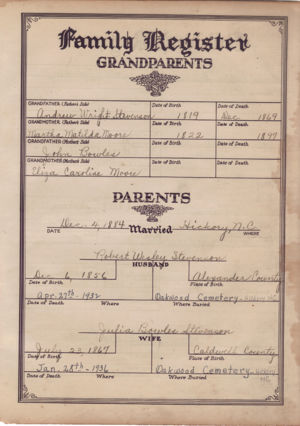 Family Register
GRANDPARENTS
GRANDFATHER (Fathers Side) Date of Birth Date of Death
Andrew Wright Stevenson 1819 Dec. 1869
GRANDMOTHER (Fathers Side) Date of Birth Date of Death
Martha Matilda Moore 1822 1897
GRANDFATHER (Mothers Side) Date of Birth Date of Death
John Bowles
GRANDMOTHER (Mothers Side) Date of Birth Date of Death
Eliza Caroline Moore
PARENTS
Dec. 4, 1884 Hickory, N.C.
DATE Married WHERE
Robert Wesley Stevenson
HUSBAND
Dec 6, 1856 Alexander County
Date of Birth Place of Birth
Apr-27th-1932 Oakwood Cemetery-Hickory NC
Date of Death Where Where Buried
Julia Bowles Stevenson
WIFE
July 23, 1867 Caldwell County
Date of Birth Place of Birth
Jan. 28th-1936 Oakwood Cemetery-Hickory
NC
Date of Death Where Where Buried